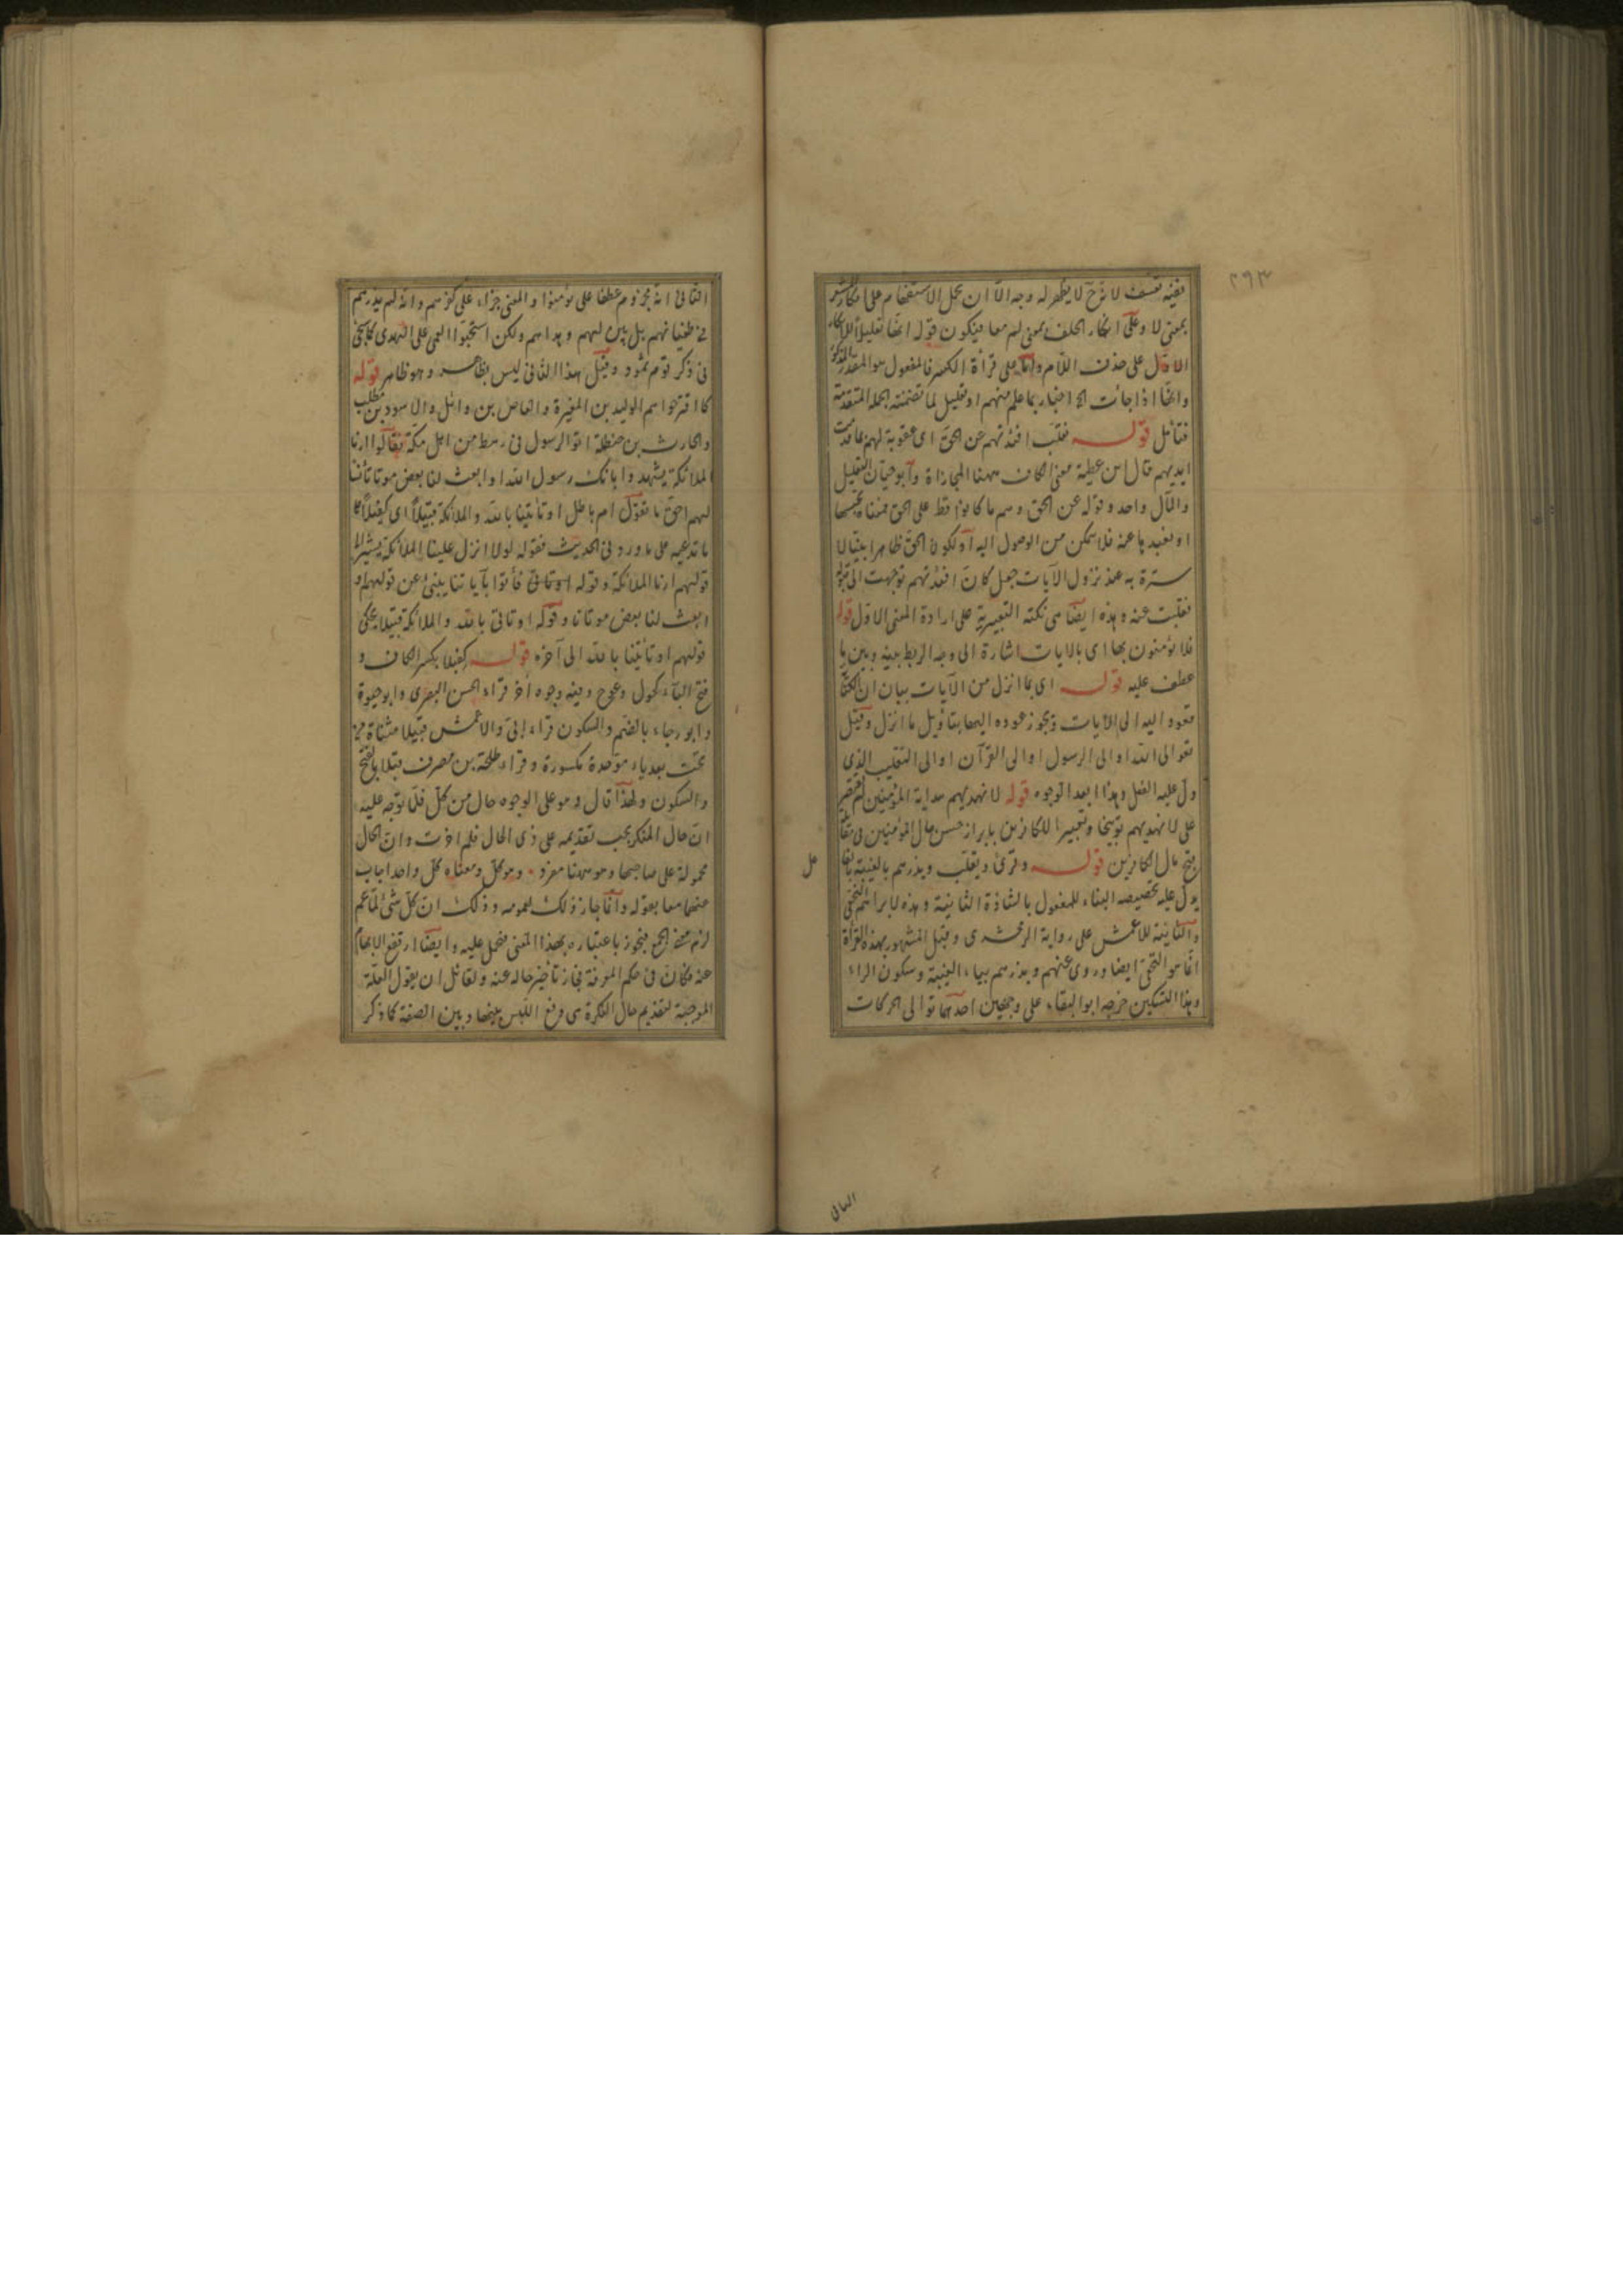 ٢٩٣
ففيه تعسف لا يظهر له وجه الا ان يحمل الاستفهام على
بمعنى لا وعلى انكار الحلف بمعنى لم معا فيكون قوله انها تعليلا
الاول على حذف اللام واما على قراءة الكسر فالمفعول هو المقدر
وانها اذا جاءت الخ اخبار بما علم منهم او تعليل لما تضمنته الجملة المتقدمة
فتأمل قوله فقلب افئدتهم عن الحق اى عقوبة لهم بما قدمت
ايديهم قال ابن عطية معنى الكاف ههنا المجازاة وابو حيان التعليل
والمآل واحد وقوله عن الحق وهم ما كانوا قط على الحق
او تبعيدها عنه فلا تمكن من الوصول اليه او لكون الحق ظاهرا بينا لا
سترة به عند نزول الآيات جعل كأن افئدتهم توجهت الى
فقلبت عنه وهذه ايضا هى نكتة التعبير به على ارادة المعنى الاول قوله
فلا يؤمنون بها اى بالايات اشارة الى وجه الربط بينه وبين ما
عطف عليه قوله اى بما انزل من الآيات بيان ان
تعود اليه الى الآيات ويجوز عوده اليها بتأويل ما انزل وقيل
تعود الى الله او الى الرسول او الى القرآن او الى التقليب الذى
دل عليه الفعل وهذا ابعد الوجوه قوله لا نهديهم هداية المؤمنين
على لا نهديهم توبيخا وتعييرا للكافرين بابراز حسن حال المؤمنين فى
قبح حال الكافرين قوله وقرئ ويقلب ويذرهم بالغيبة
يدل عليه تخصيصه البناء للمفعول بالشاذة الثانية وهذه لابراهيم النخعى
والثانية للاعمش على رواية الزمخشرى وقيل المشهور بهذه القراءة
انما هو النخعى ايضا وروى عنهم ويذرهم بياء الغيبة وسكون الراء
وهذا التسكين خرجه ابو البقاء على وجهين احدهما توالى الحركات
الثانى
الثانى انه مجزوم عطفا على يؤمنوا والمعنى جزاء على كفرهم وانه لم يذرهم
فى طغيانهم بل بين لهم وهداهم ولكن استحبوا العمى على الهدى كما يجئ
فى ذكر قوم ثمود وقيل هذا الثانى ليس بظاهر وهو ظاهر قوله
كما اقترحوا هم الوليد بن المغيرة والعاص بن وائل والاسود بن مطلب
والحارث بن حنظلة اتوا الرسول فى رهط من اهل مكة فقالوا ارنا
الملائكة يشهدوا بانك رسول الله او ابعث لنا بعض موتانا
أحق ما تقول ام باطل او تأتينا بالله والملائكة قبيلا اى كفيلا
ما تدعيه على ما ورد فى الحديث فقوله لولا انزل علينا الملائكة يشير الى
قولهم ارنا الملائكة وقوله او تأتى فأتوا بآياتنا ينبئ عن قولهم او
ابعث لنا بعض موتانا وقوله او تأتى بالله والملائكة قبيلا يحكى
قولهم او تأتينا بالله الى آخره قوله كفيلا بكسر الكاف و
فتح الباء كحول وعوج وفيه وجوه اخر قراءة الحسن البصرى وابو حيوة
وابو رجاء بالضم والسكون قراءة ابى والاعمش قبيلا مثناة من
تحت بعد باء موحدة مكسورة وقراءة طلحة بن مصرف قبلا بالفتح
والسكون ولهذا قال وهو على الوجوه حال من كل فلما توجه عليه
ان حال المنكر يجب تقديمه على ذى الحال فلم اخرت وان الحال
محمولة على صاحبها وهو ههنا مفرد وهو كل ومعناه كل واحد اجاب
عنهما معا بقوله وانما جاز ذلك لعمومه وذلك ان كل شئ لما عم
لزم منه الجمع فيجوز باعتباره بهذا المعنى فحمل عليه وايضا ارتفع الابهام
عنه فكان فى حكم المعرفة فجاز تأخير حاله عنه ولقائل ان يقول العلة
الموجبة لتقديم حال النكرة هى رفع اللبس بينها وبين الصفة كما ذكر